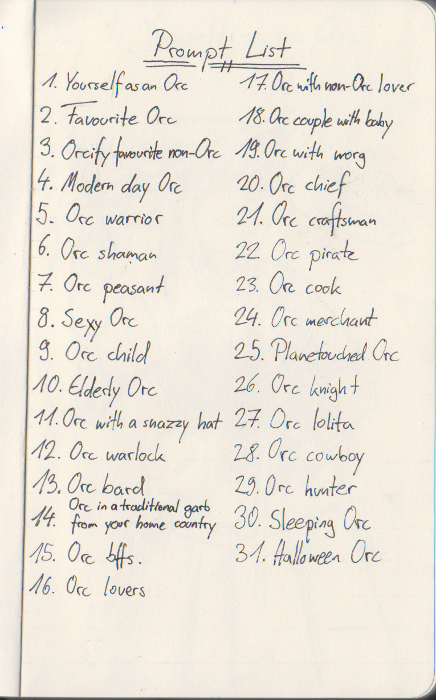 Prompt List
1. Yourself as an Orc
2. Favourite Orc
3. Orcify favourite non-Orc
4. Modern day Orc
5. Orc warrior
6. Orc shaman
7. Orc peasant
8. Sexy Orc
9. Orc child
10. Elderly Orc
11. Orc with a snazzy hat
12. Orc warlock
13. Orc bard
14. Orc in a traditional garb
from your home country
15. Orc bffs.
16. Orc lovers
17. Orc with non-Orc lover
18. Orc couple with baby
19. Orc with worg
20. Orc chief
21. Orc craftsman
22. Orc pirate
23. Orc cook
24. Orc merchant
25. Planetouched Orc
26. Orc knight
27. Orc lolita
28. Orc cowboy
29. Orc hunter
30. Sleeping Orc
31. Halloween Orc